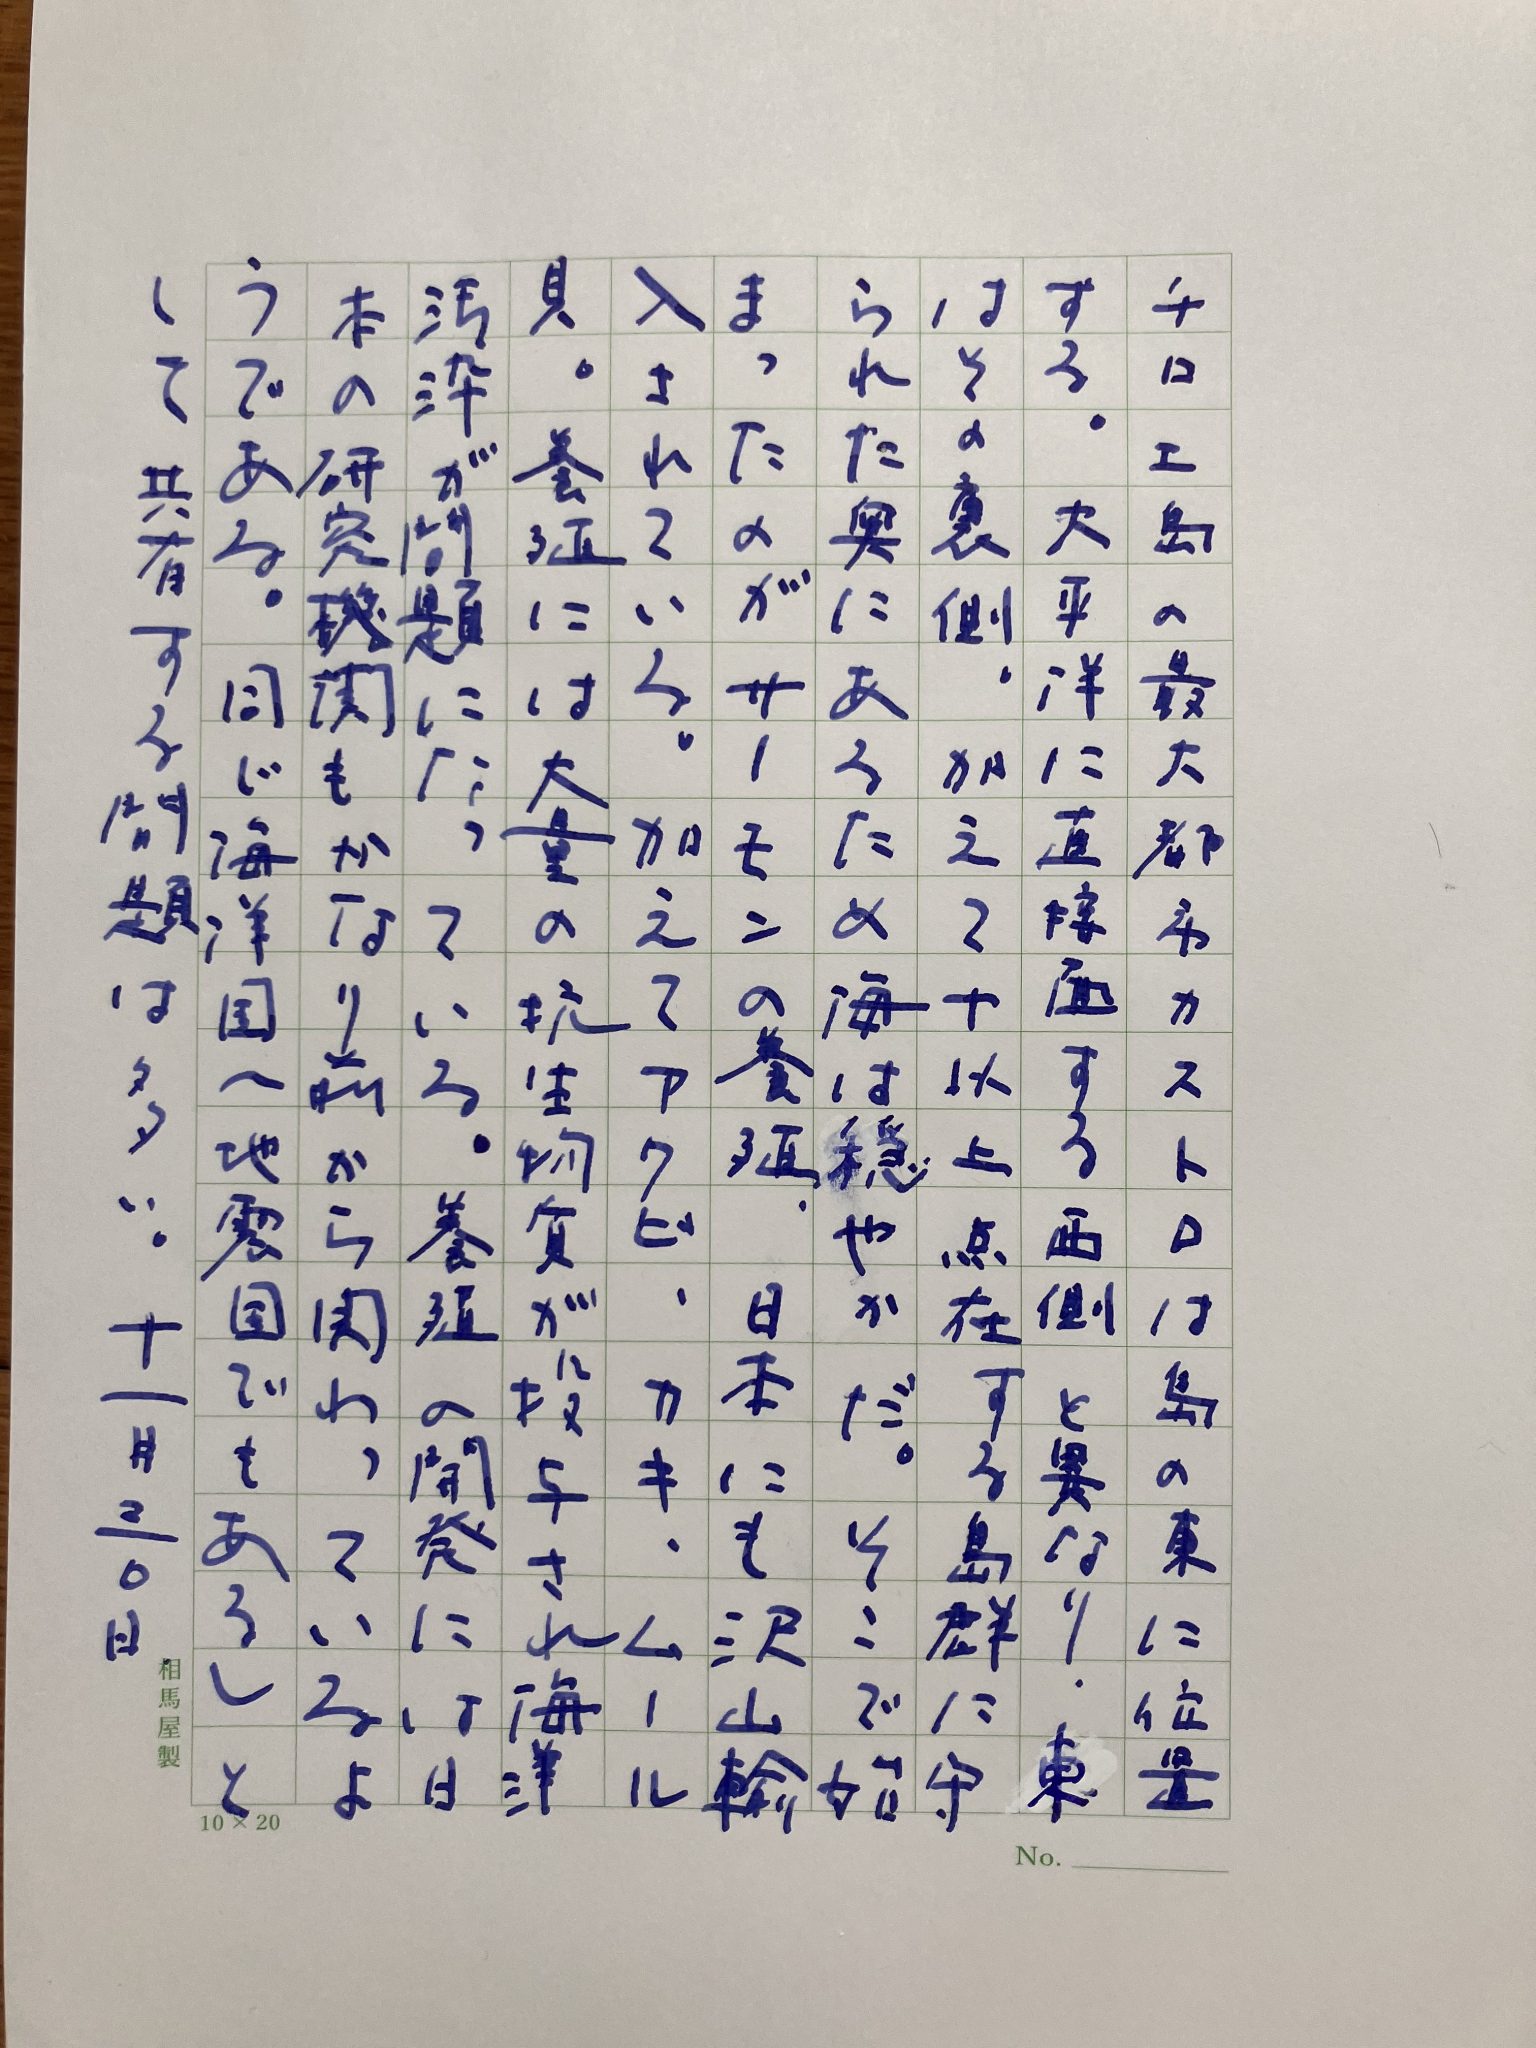 チロエ島の最大都市カストロは島の東に位置
する。太平洋に直接面する西側と異なり、東
はその裏側。加えて十以上点在する島群に守
られた奥にあるため海は穏やかだ。そこで始
まったのがサーモンの養殖。日本にも沢山輸
入されている。加えてアワビ、カキ、ムール
貝。養殖には大量の抗生物質が投与され海洋
汚染が問題になっている。養殖の開発には日
本の研究機関もかなり前から関わっているよ
うである。同じ海洋国〜地震国でもあるしと
して共有する問題は多い。十一月二〇日
相馬屋製
10×20
No.